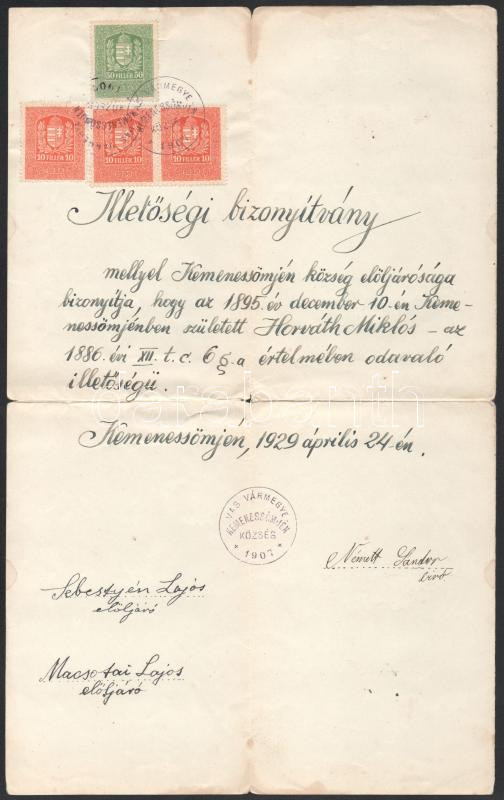 50 FILLÉR 50
10 FILLÉR 10
10 FILLÉR 10
10 FILLÉR 10
Illetőségi bizonyítvány
mellyel Kemenessömjén község elöljárósága
bizonyítja, hogy az 1895. év december 10.-én Keme-
nessömjénben született Horváth Miklós - az
1886. évi XII. t.c. 6 §.-a értelmében odavaló
illetőségü.
Kemenessömjén, 1929 április 24-én.
VAS VÁRMEGYE
KEMENESSÖMJÉN
KÖZSÉG
* 1907 *
Németh Sándor
biró
Sebestyén Lajos
elöljáró
Macsotai Lajos
elöljáró
darabanth